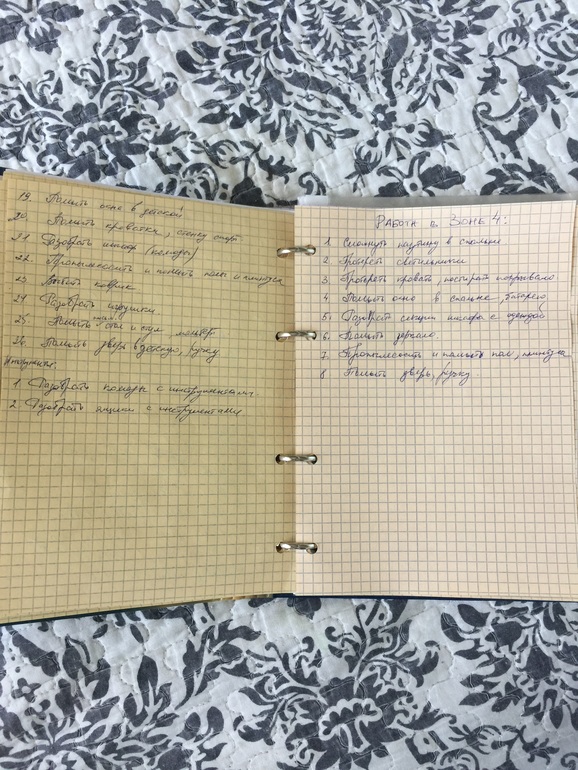 19. Помыть окно в детской
20. Помыть кроватки, стенку
21. Разобрать шкаф (комоды)
22. Пропылесосить и помыть полы и плинтуса
23. коврик
24. Разобрать игрушки
25. Помыть стол и стул
26. Помыть дверь в детскую, ручку
1. Разобрать с инструментами.
2. Разобрать ящики с инструментами.
Работа в Зоне 4:
1 Смахнуть паутину в спальне
2. Протереть светильники
3. Протереть кровать, постирать покрывало
4. Помыть окно в спальне, батарею
5. Разобрать секции шкафа с одеждой
6. Помыть зеркало
7. Пропылесосить и помыть пол, плинтуса
8 Помыть дверь, ручку.